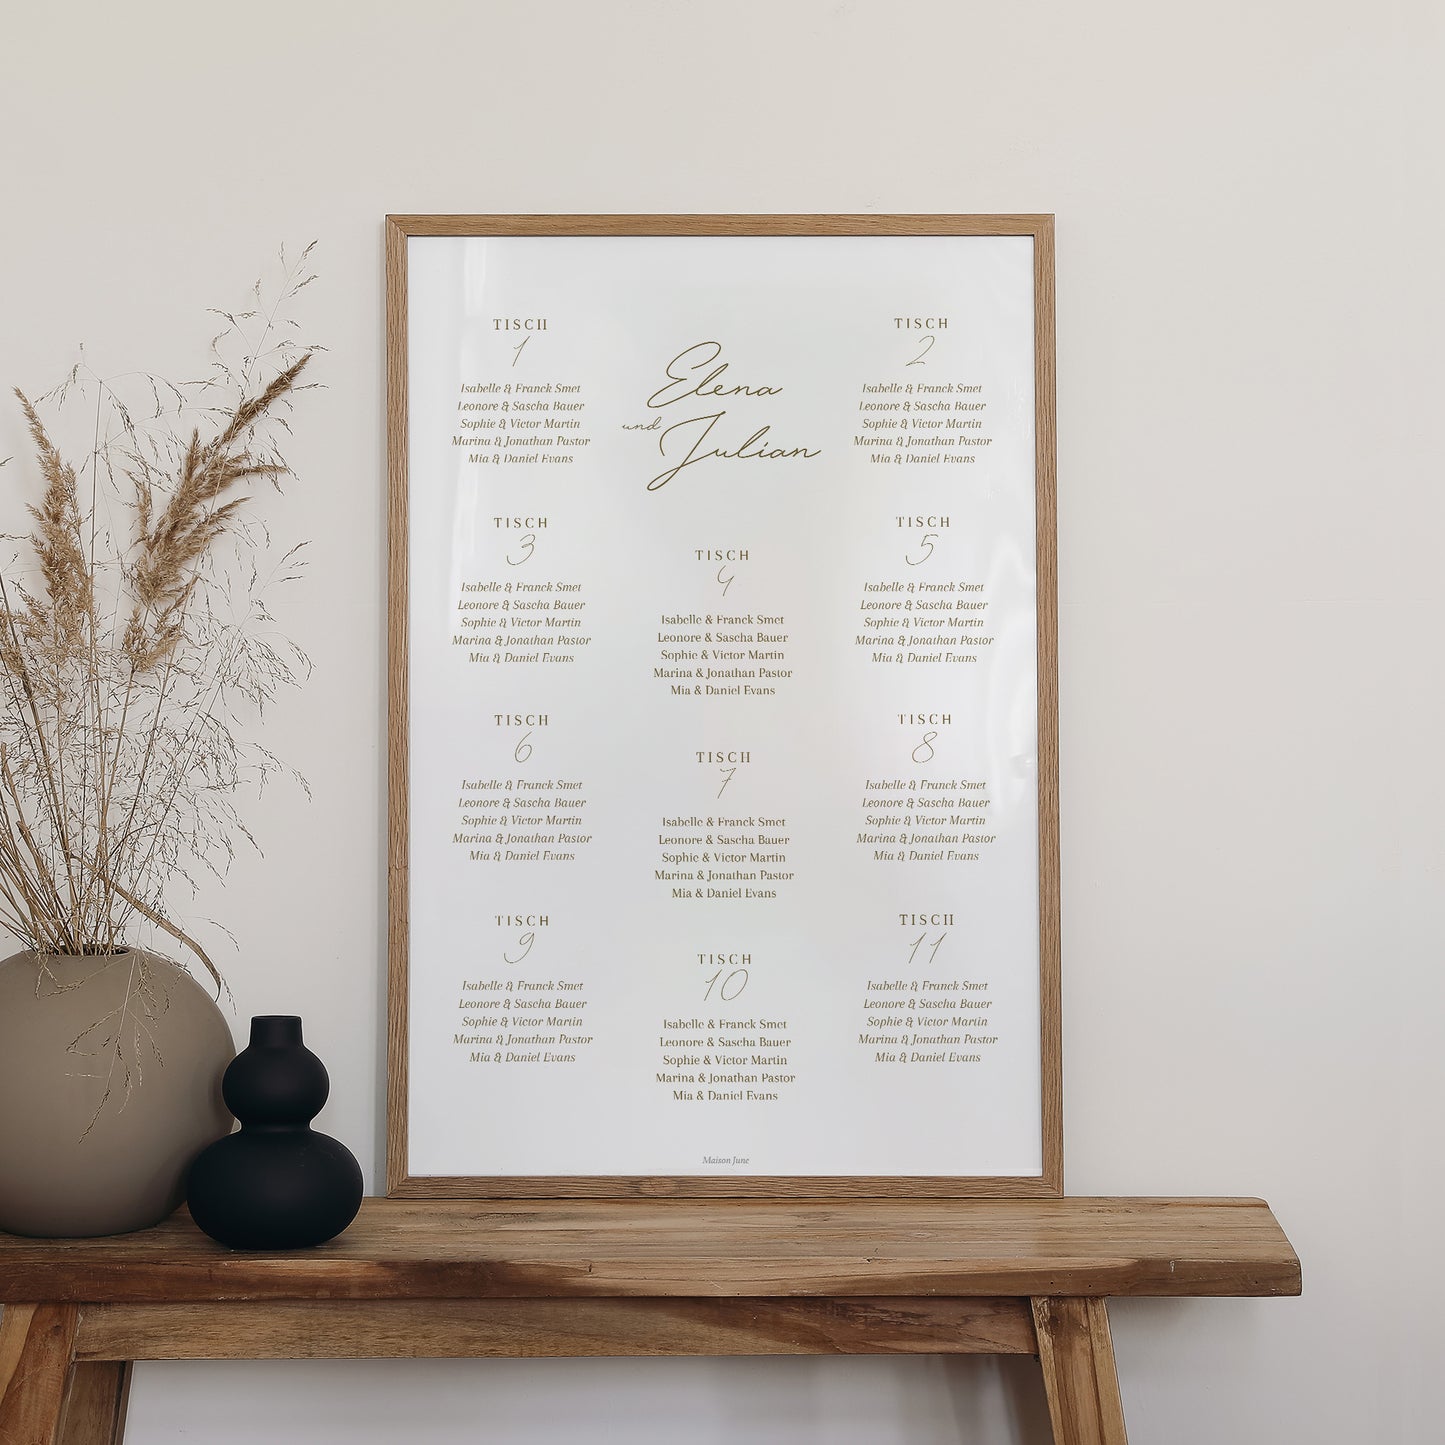 TISCH
1
Isabelle & Franck Smet
Leonore & Sascha Bauer
Sophie & Victor Martin
Marina & Jonathan Pastor
Mia & Daniel Evans
Elena
und Julian
TISCH
2
Isabelle & Franck Smet
Leonore & Sascha Bauer
Sophie & Victor Martin
Marina & Jonathan Pastor
Mia & Daniel Evans
TISCH
3
Isabelle & Franck Smet
Leonore & Sascha Bauer
Sophie & Victor Martin
Marina & Jonathan Pastor
Mia & Daniel Evans
TISCH
4
Isabelle & Franck Smet
Leonore & Sascha Bauer
Sophie & Victor Martin
Marina & Jonathan Pastor
Mia & Daniel Evans
TISCH
5
Isabelle & Franck Smet
Leonore & Sascha Bauer
Sophie & Victor Martin
Marina & Jonathan Pastor
Mia & Daniel Evans
TISCH
6
Isabelle & Franck Smet
Leonore & Sascha Bauer
Sophie & Victor Martin
Marina & Jonathan Pastor
Mia & Daniel Evans
TISCH
7
Isabelle & Franck Smet
Leonore & Sascha Bauer
Sophie & Victor Martin
Marina & Jonathan Pastor
Mia & Daniel Evans
TISCH
8
Isabelle & Franck Smet
Leonore & Sascha Bauer
Sophie & Victor Martin
Marina & Jonathan Pastor
Mia & Daniel Evans
TISCH
9
Isabelle & Franck Smet
Leonore & Sascha Bauer
Sophie & Victor Martin
Marina & Jonathan Pastor
Mia & Daniel Evans
TISCH
10
Isabelle & Franck Smet
Leonore & Sascha Bauer
Sophie & Victor Martin
Marina & Jonathan Pastor
Mia & Daniel Evans
TISCH
11
Isabelle & Franck Smet
Leonore & Sascha Bauer
Sophie & Victor Martin
Marina & Jonathan Pastor
Mia & Daniel Evans
Maison June